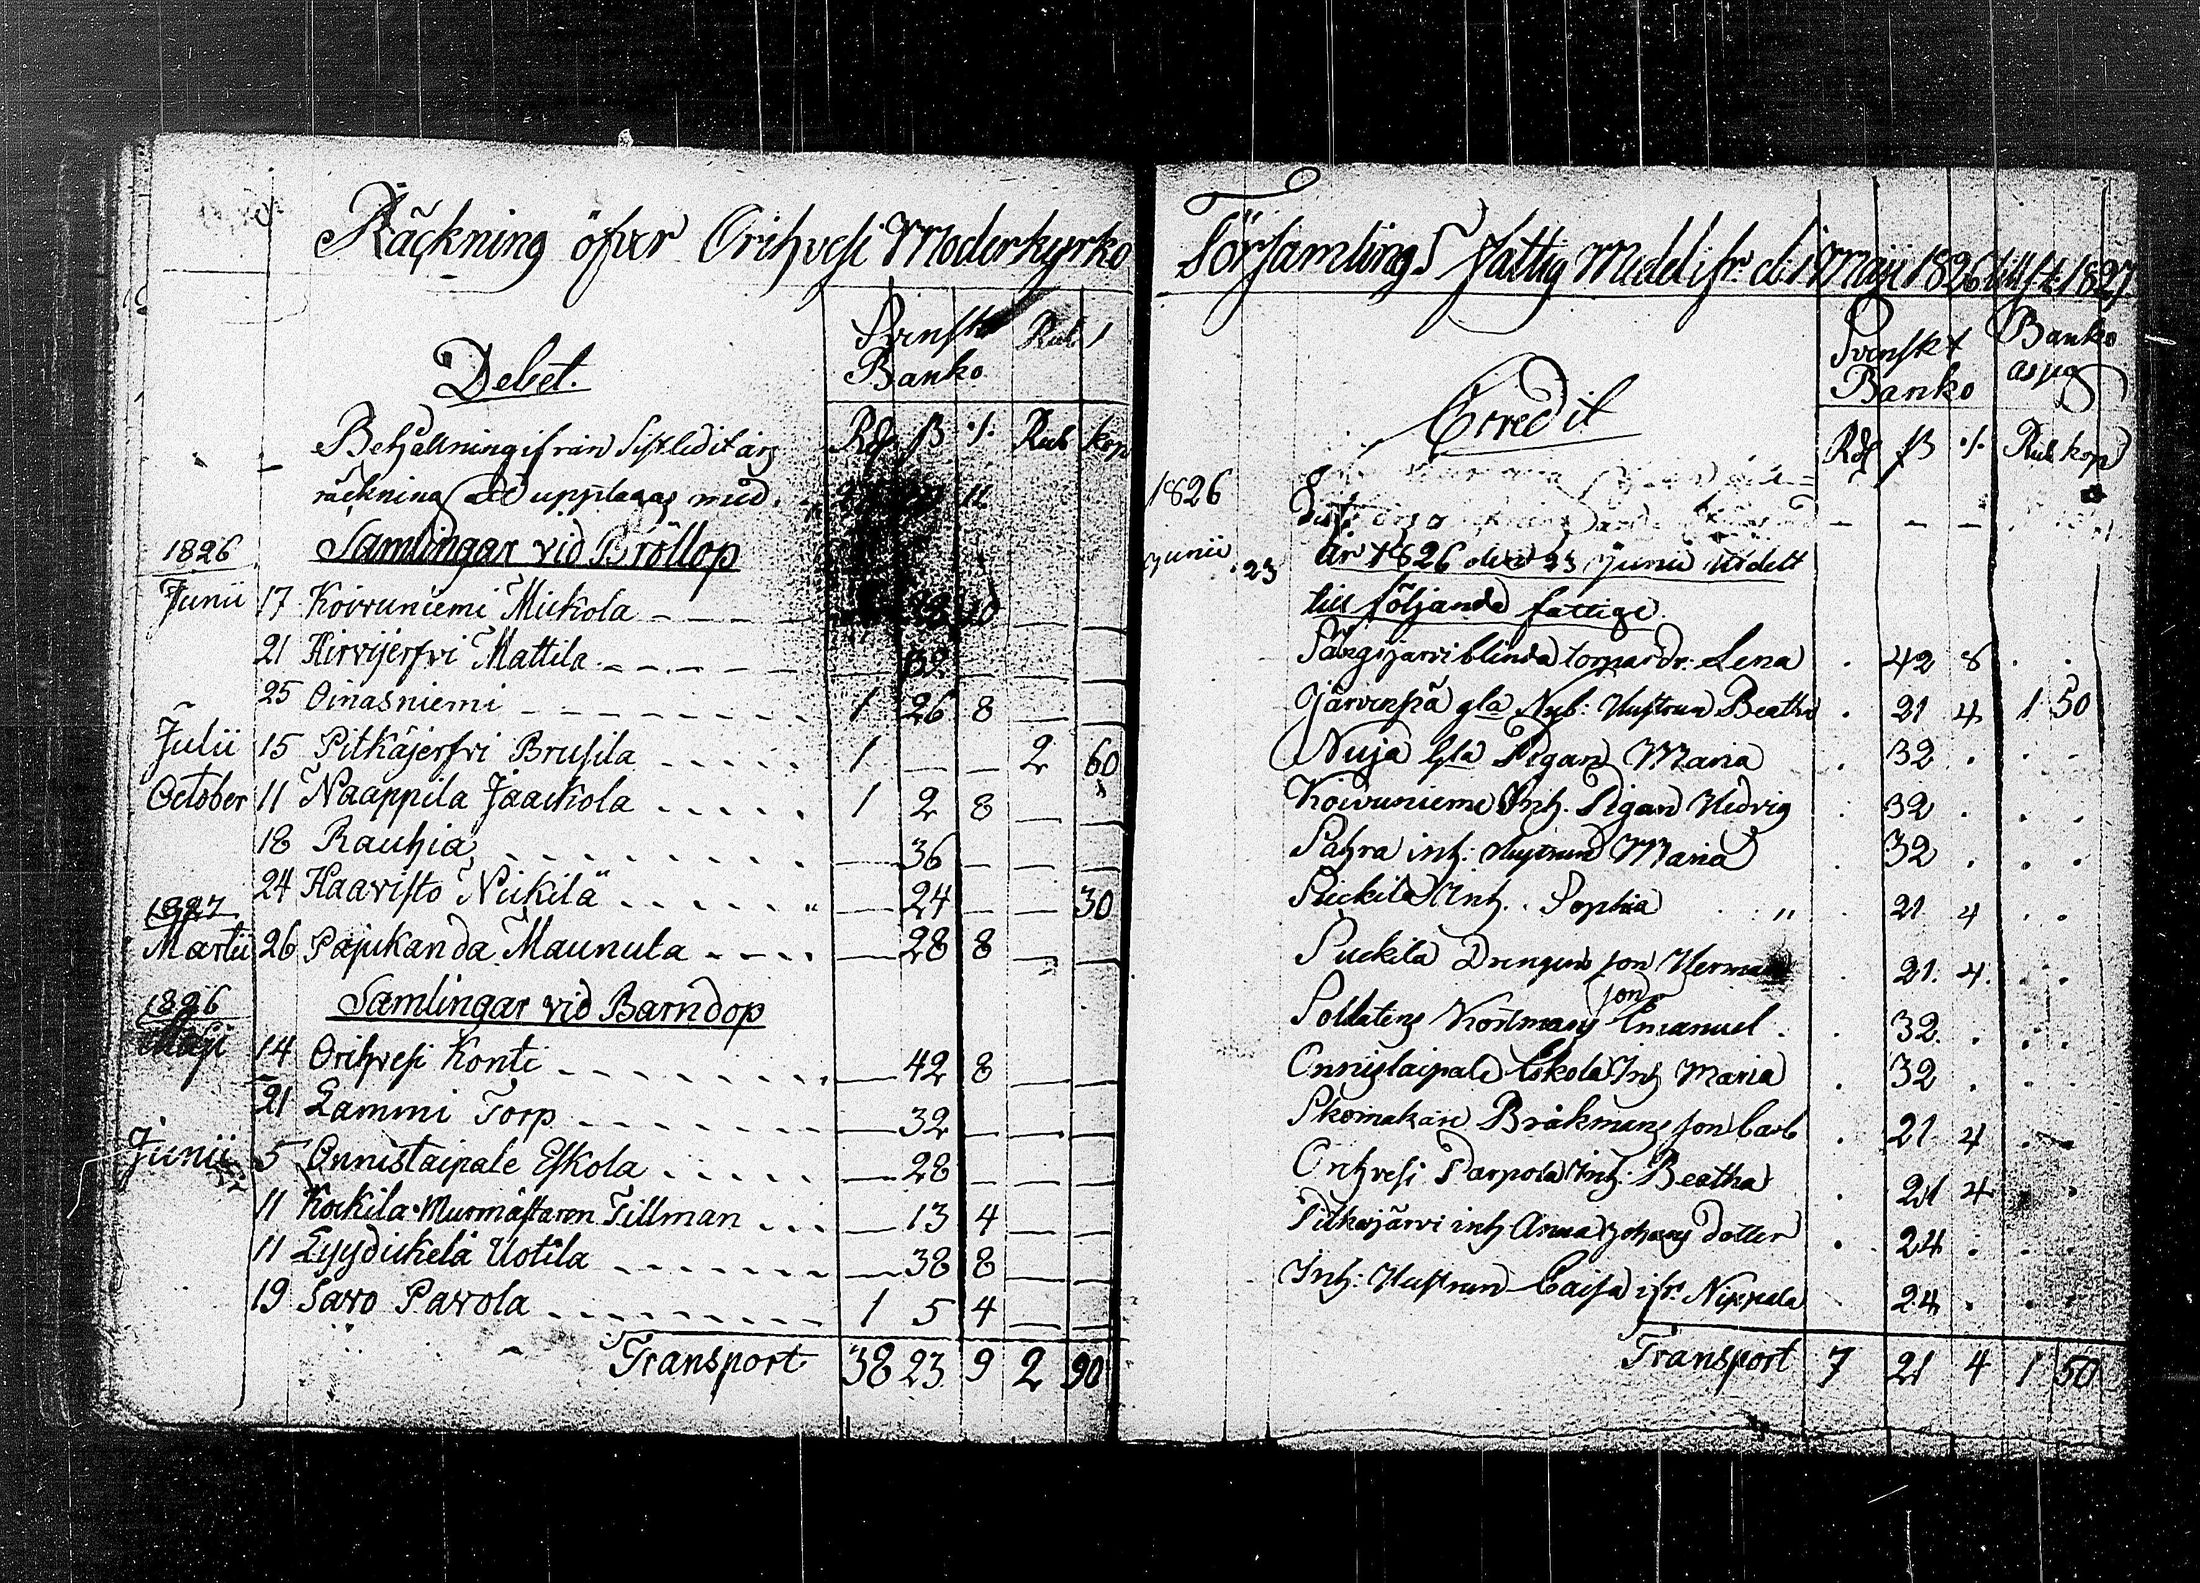 Räckning öfver Orihvesi Moderkyrko
Debet.
Svenskt Banko Rub
Rdr ß .|. Rub kop
Behållning ifrån sistledit års
räckning upptagas med 11
1826 Samlingar vid Bröllop
Junii 17 Koivuniemi Mickola
21 Hirvijerfvi Mattila 32
25 Oinasniemi 1 26 8
Julii 15 Pitkäjerfvi Brusila 1 2 60
October 11 Naappila Jaackola 1 2 8
18 Rauhia 36
24 Haavisto Nickilä 24 30
1827
Martii 26 Pajukanda Maunula 28 8
1826 Samlingar vid Barndop
Maji 14 Orihvesi Konti 42 8
21 Lammi Torp 32
Junii 5 Onnistaipale Eskola 28
11 Kockila Murmästaren Tillman 13 4
11 Lyydickelä Uotila 38 8
19 Savo Pavola 1 5 4
Transport 38 23 9 2 90
Församlings fattig Medel ifr. d. 1 Maji 1826 till 1827
Credit
Svenskt Banko Banko
Rdr ß .|. Rub kop
1826
Junii 23 År 1826 den 23 Junii utdelt
till följande fattige
blinda torpar dr. Lena 42 8
Järvenpä gla Hustrun Beatha 21 4 1 50
Nuja gla Pigan Maria 32
Koivuniemi Inh. Pigan Hedvig 32
Pahra inh: Hustrun Maria 32
Puckila Inh. Sophia 21 4
Puckila Drengens son Herman 21 4
son
Soldatens Emanuel 32
Onnistaipale Eskola Inh Maria 32
Skomakare Bråkmans son Carl 21 4
Orihvesi Parpola Inh: Beatha 21 4
Pitkejärvi inh Anna Johans dotter 24
Inh: Hustrun Caisa ifr. 24
Transport 7 21 4 1 50